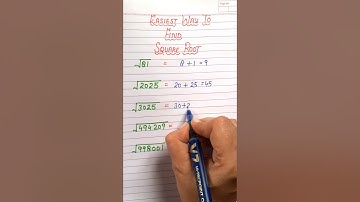 EASIEST WAY TO
FIND
SQUARE ROOT
√81 = 8+1=9
√2025 = 20+25=45
√3025 = 30+2
√494209 =
√998001